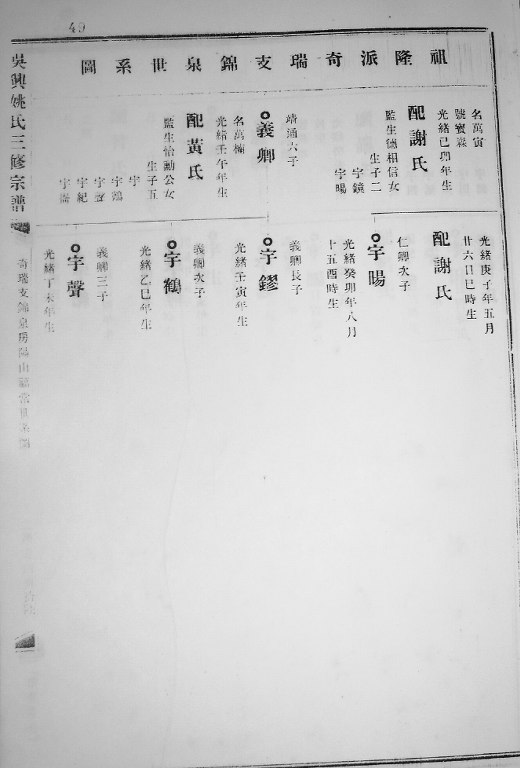 49
祖隆派奇瑞支錦泉世系圖
吳興姚氏三修宗譜
名萬寅
號寶森
光緒己卯年生
配謝氏
監生德相信女
生子二
宇鏡
宇暘
靖通六子
義卿
名萬楠
光緒壬午年生
配黃氏
監生怡勳公女
生子五
宇
宇鴻
宇聲
宇紀
光緒庚子年五月
廿六日巳時生
配謝氏
仁卿次子
宇暘
光緒癸卯年八月
十五酉時生
義卿長子
宇鏐
光緒壬寅年生
義卿次子
宇鶴
光緒乙巳年生
義卿三子
宇聲
光緒丁未年生
奇瑞支錦泉房陽山